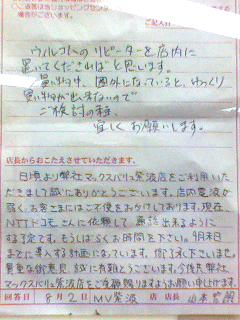 店舗又はショッピングセン
場合がございます。
ご記入日
ウィルコムの リピーターを 店内に
置いてくださればと思します。
買い物中、圏外になっていると、ゆっくり
買い物が出来ないので
ご検討の程、
宜しく お願いします。
店長からおこたえさせていただきます。
日頃より弊社マックスバリュ紫波店をご利用いた
だきまして誠にありがとうございます。店内電波が
弱く、お客さまにはご不便をおかけしております。現在、
NTTドコモさんに依頼して、通話出来るように
する予定です。もうしばらくお時間を下さい。9月末日
までに導入する計画になっています。
貴重な御意見、誠に有難とうございます。今後共弊社
マックスバリュ紫波店をご愛顧賜りますようお願い申し上げます。
回答日 8月2日 MV紫波 店 店長 山本